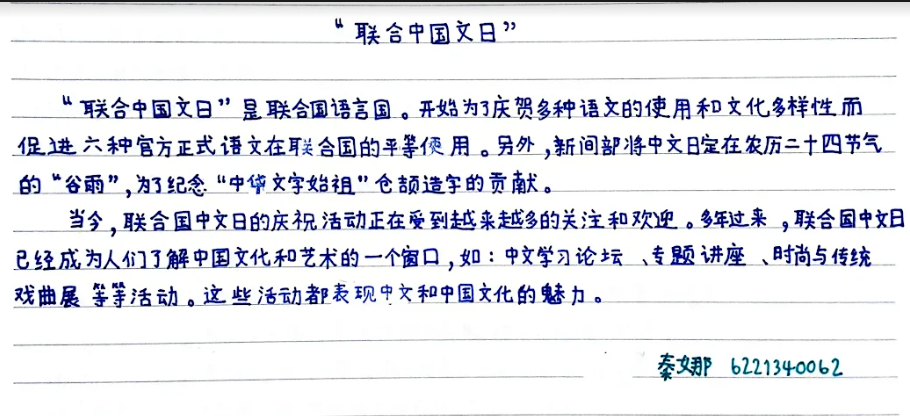 “联合中国文日”
“联合中国文日”是联合国语言国。开始为了庆贺多种语文的使用和文化多样性而
促进六种官方正式语文在联合国的平等使用。另外,新间部将中文日定在农历二十四节气
的“谷雨”,为了纪念“中华文字始祖”仓颉造字的贡献。
当今,联合国中文日的庆祝活动正在受到越来越多的关注和欢迎。多年过来,联合国中文日
已经成为人们了解中国文化和艺术的一个窗口,如:中文学习论坛、专题讲座、时尚与传统
戏曲展等等活动。这些活动都表现中文和中国文化的魅力。
秦娜 6221340062